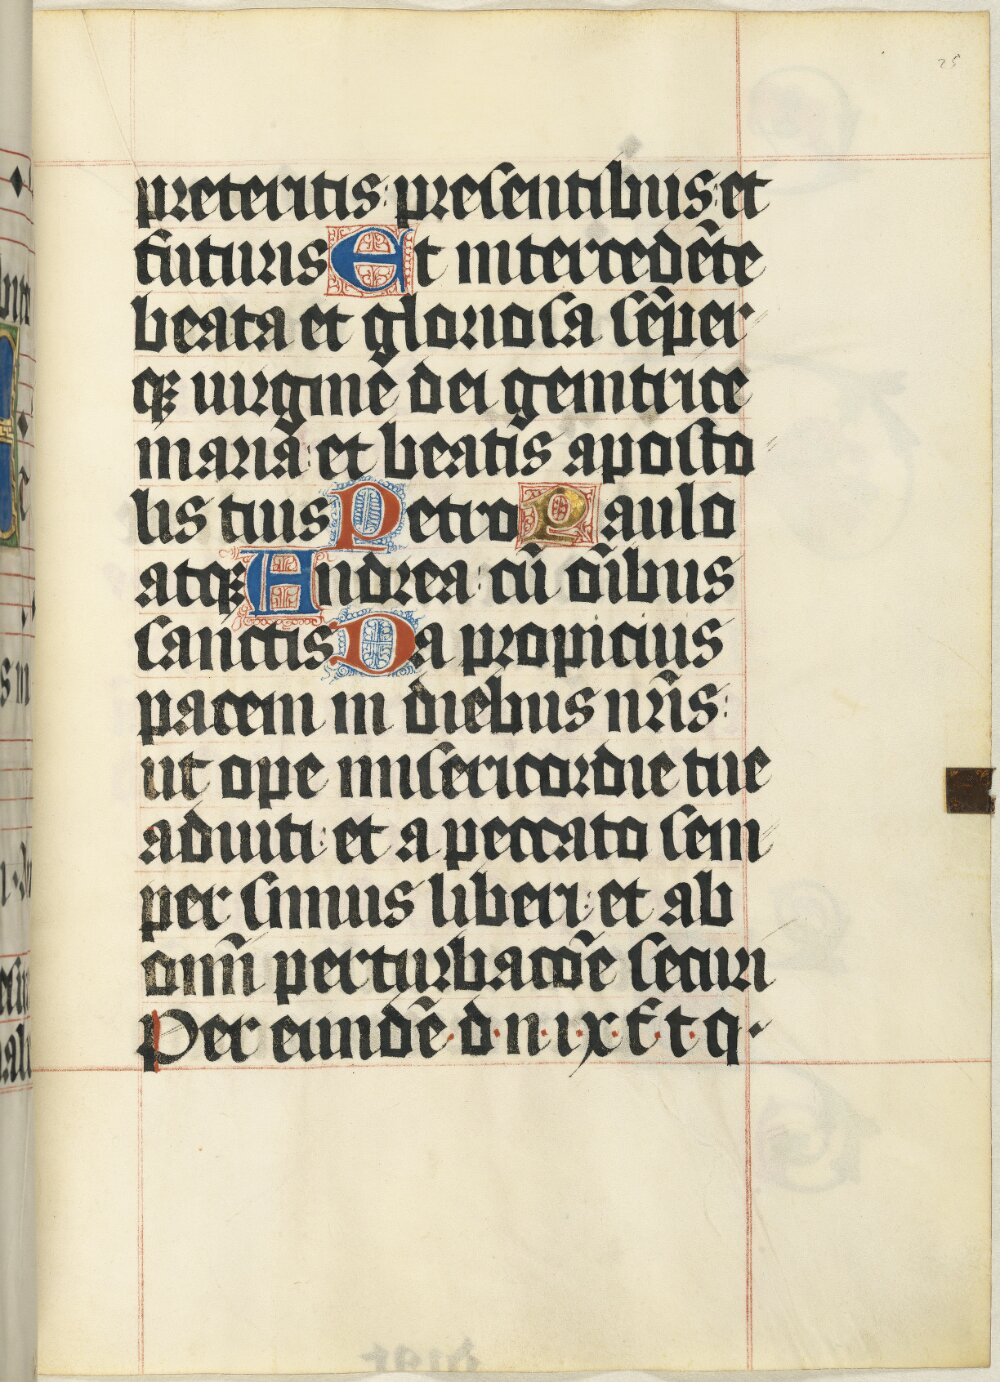 25
preteritis: presentibus: et
futuris Et intercedẽte
beata et gloriosa sẽper
qꝫ uirgine dei genitrice
maria: et beatis aposto
lis tuis Petro Paulo
atqꝫ Andrea: cũ oĩbus
sanctis Da propicius
pacem in diebus nr̃is:
ut ope misericordie tue
adiuti: et a peccato sem
per simus liberi: et ab
omĩ perturbacõe securi
Per eundẽ· d· n· i· x· f· t· q·